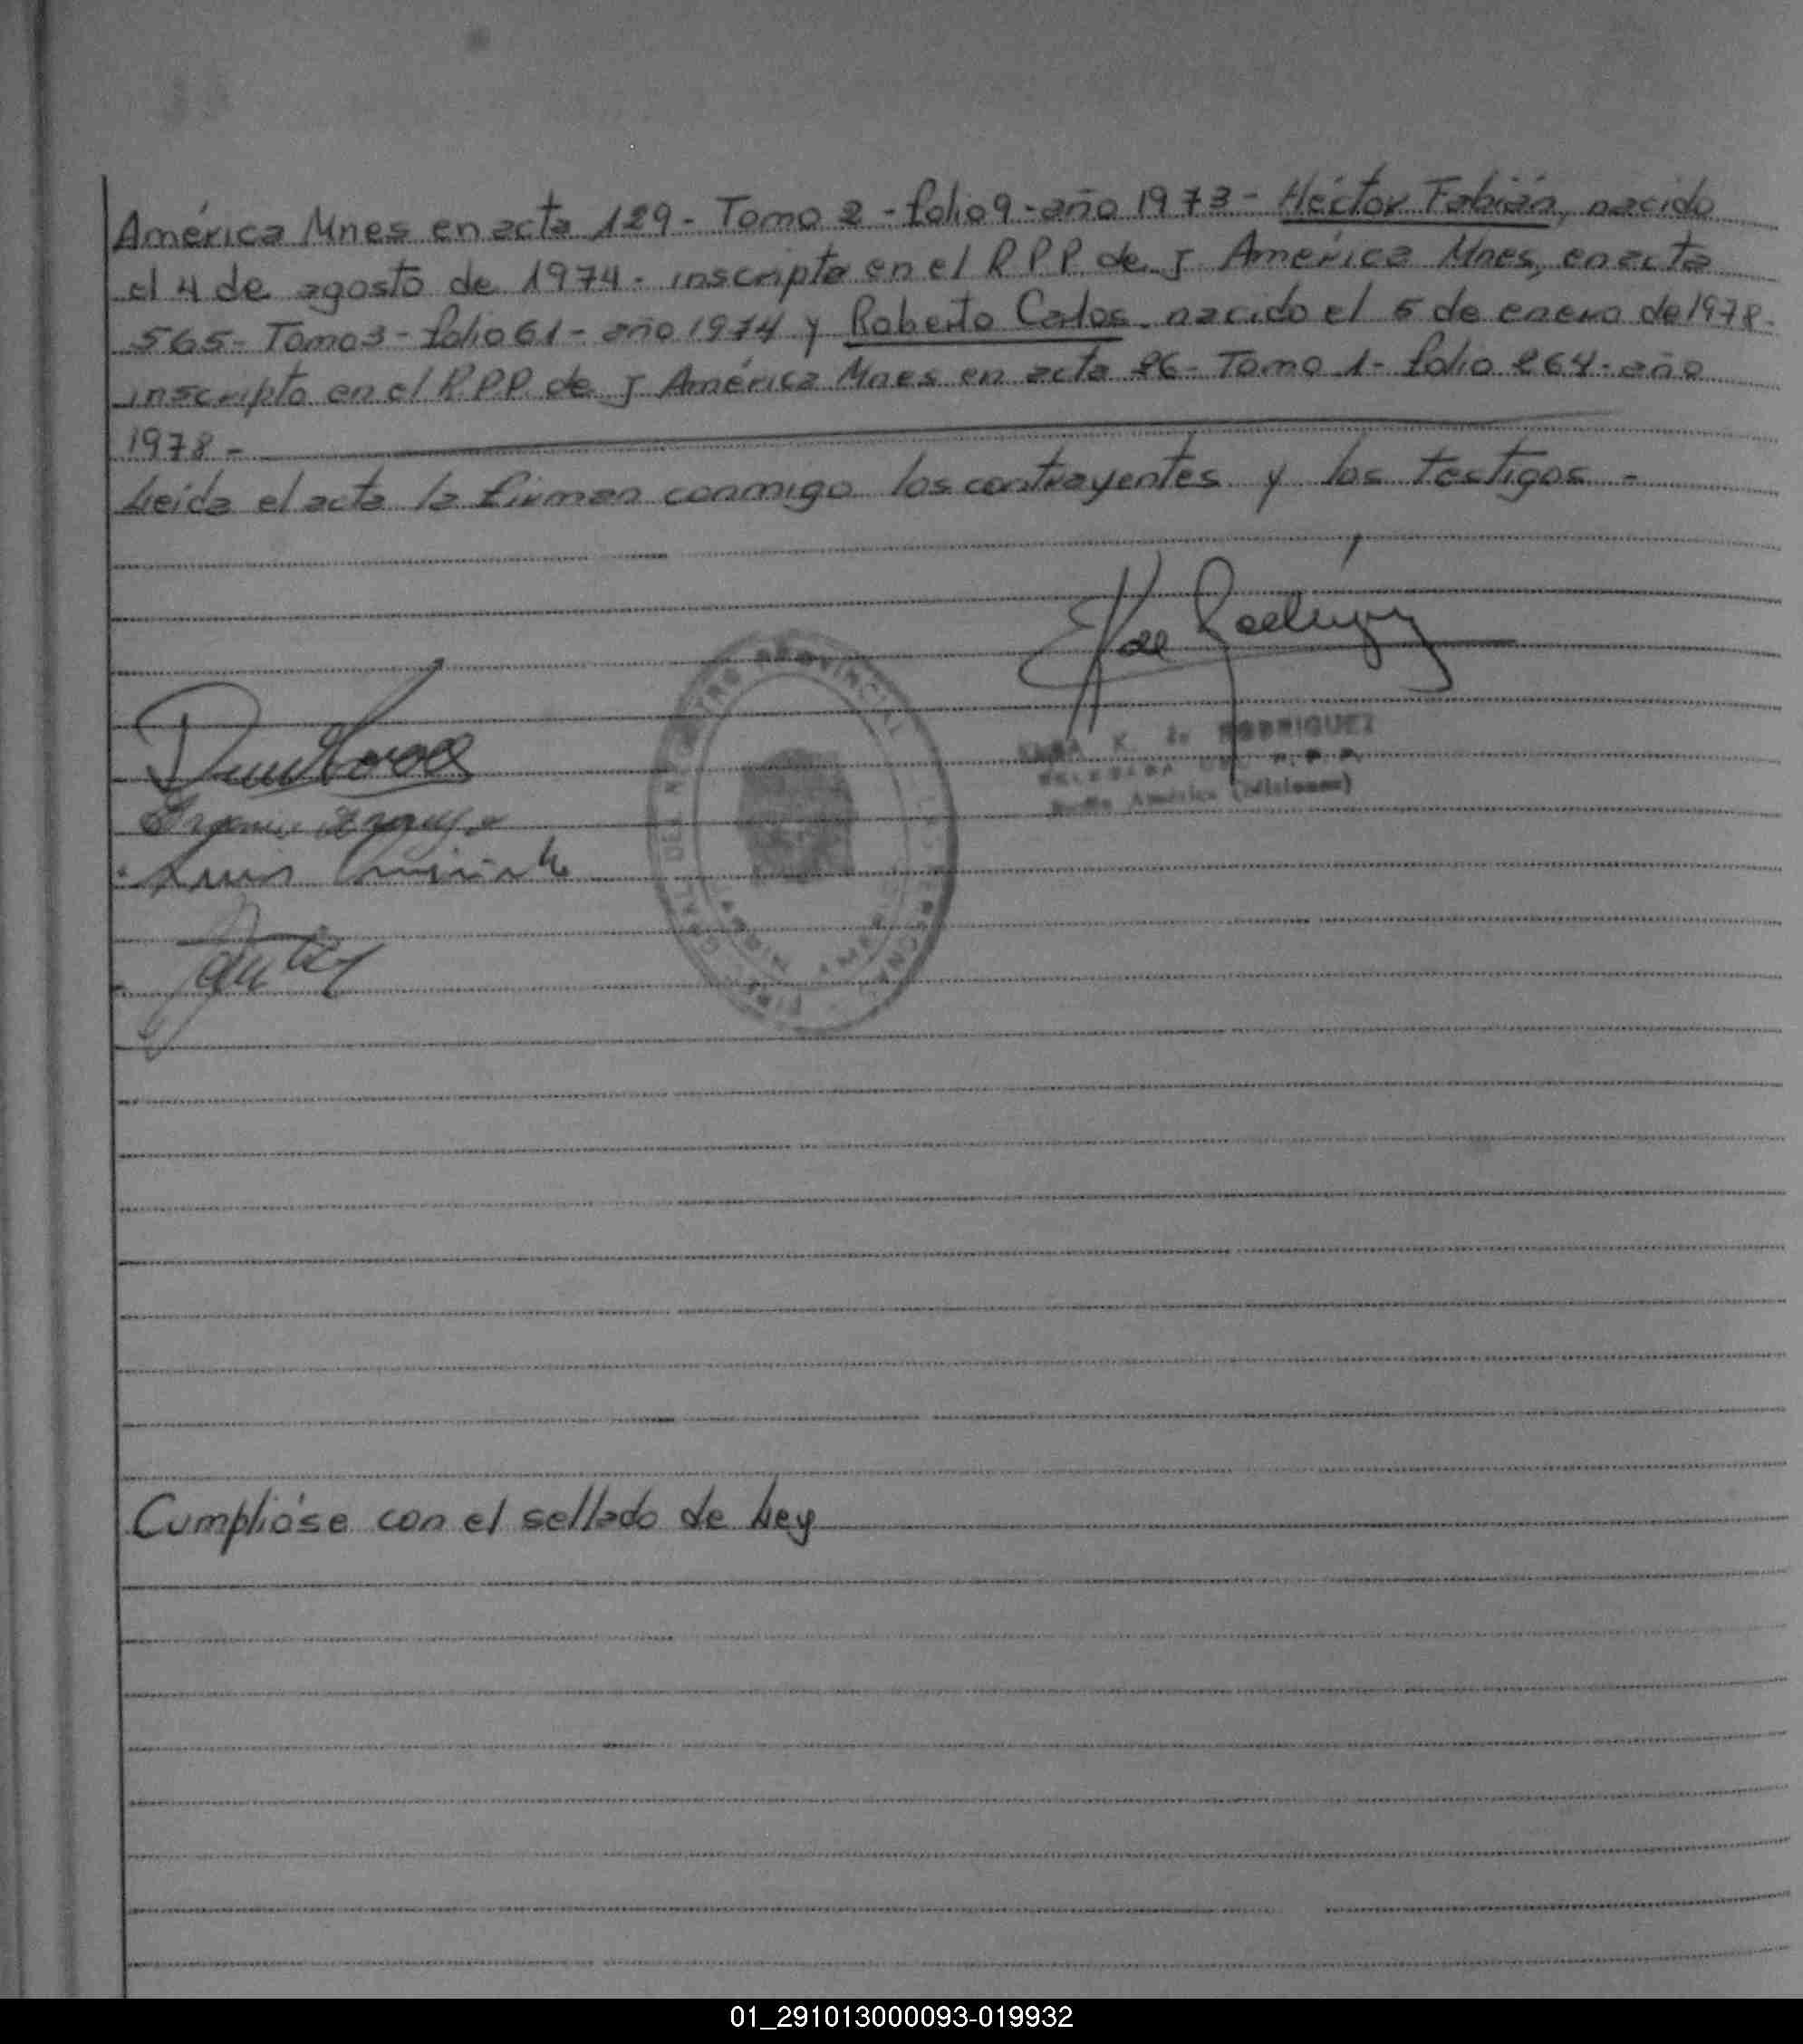 América Mnes en acta 129 - Tomo 2 - folio 9 - año 1973 - Héctor Fabián, nacido
el 4 de agosto de 1974 - inscripto en el R P P de J América Mnes, en acta
565 - Tomo 3 - folio 61 - año 1974 y Roberto Carlos - nacido el 5 de enero de 1978 -
inscripto en el R.P.P. de J América Mnes en acta 26 - Tomo 1 - folio 264 - año
1978 -
Leida el acta la firman conmigo los contrayentes y los testigos -
K. de RODRIGUEZ
América (Misiones)
Luis
Cumplióse con el sellado de Ley
01_291013000093-019932